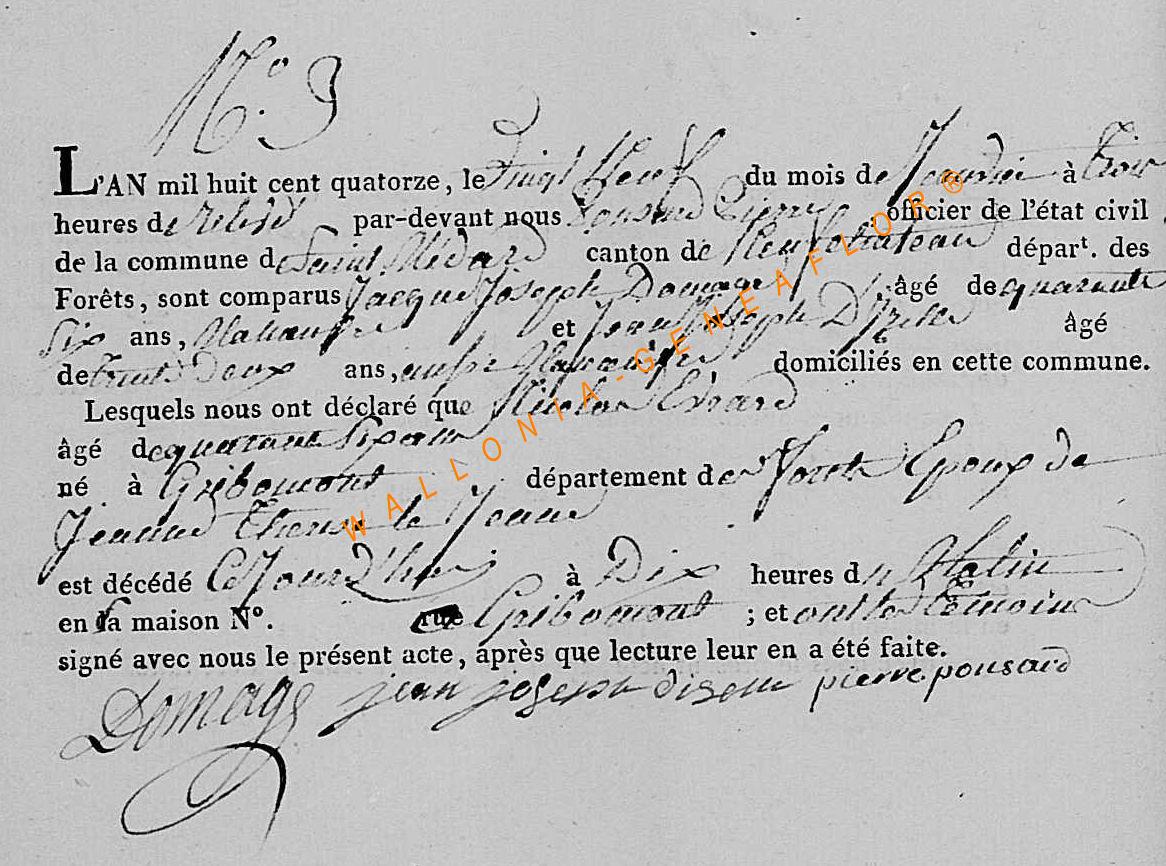 N.o 3
L'AN mil huit cent quatorze, le Vingt Neuf du mois de Janvier à trois
heures de relevé par-devant nous Pousard Pierre officier de l'état civil
de la commune de Saint Médard canton de Neufchateau départ. des
Forêts, sont comparus Jacque Joseph Domage, âgé de quarante
Six ans, et Jean Joseph âgé
de trente Deux ans, aussi domiciliés en cette commune.
Lesquels nous ont déclaré que Nicolas Evrard
âgé de quarante Six ans
né à Gribomont département des Forets Epoux de
Jeanne Therese le Jeune
est décédé Ce Jourd'hui à Dix heures du Matin
en Sa maison N°. rue Gribomont ; et ont les temoins
signé avec nous le présent acte, après que lecture leur en a été faite.
Domage jean joseph pierre pousard
WALLONIA-GENEAFLOR®